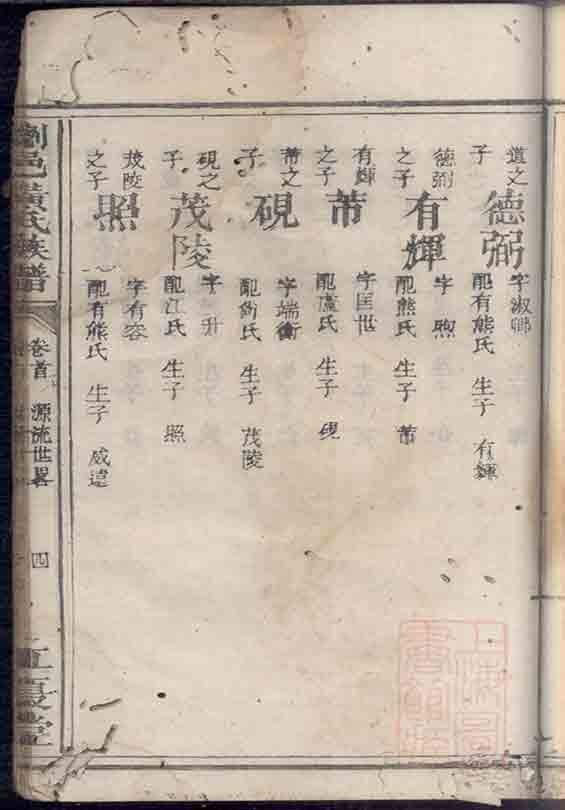 道之子
德弼
字淑卿
配有熊氏 生子 有輝
德弼之子
有輝
字 煦
配熊氏 生子 芾
有輝之子
芾
字匡世
配盧氏 生子 硯
芾之子
硯
字端衡
配衛氏 生子 茂陵
硯之子
茂陵
字 升
配江氏 生子 照
茂陵之子
照
字有容
配有熊氏 生子 威違
瀏邑黃氏族譜
卷首 源流世畧
四
江夏堂
上海圖
書館藏